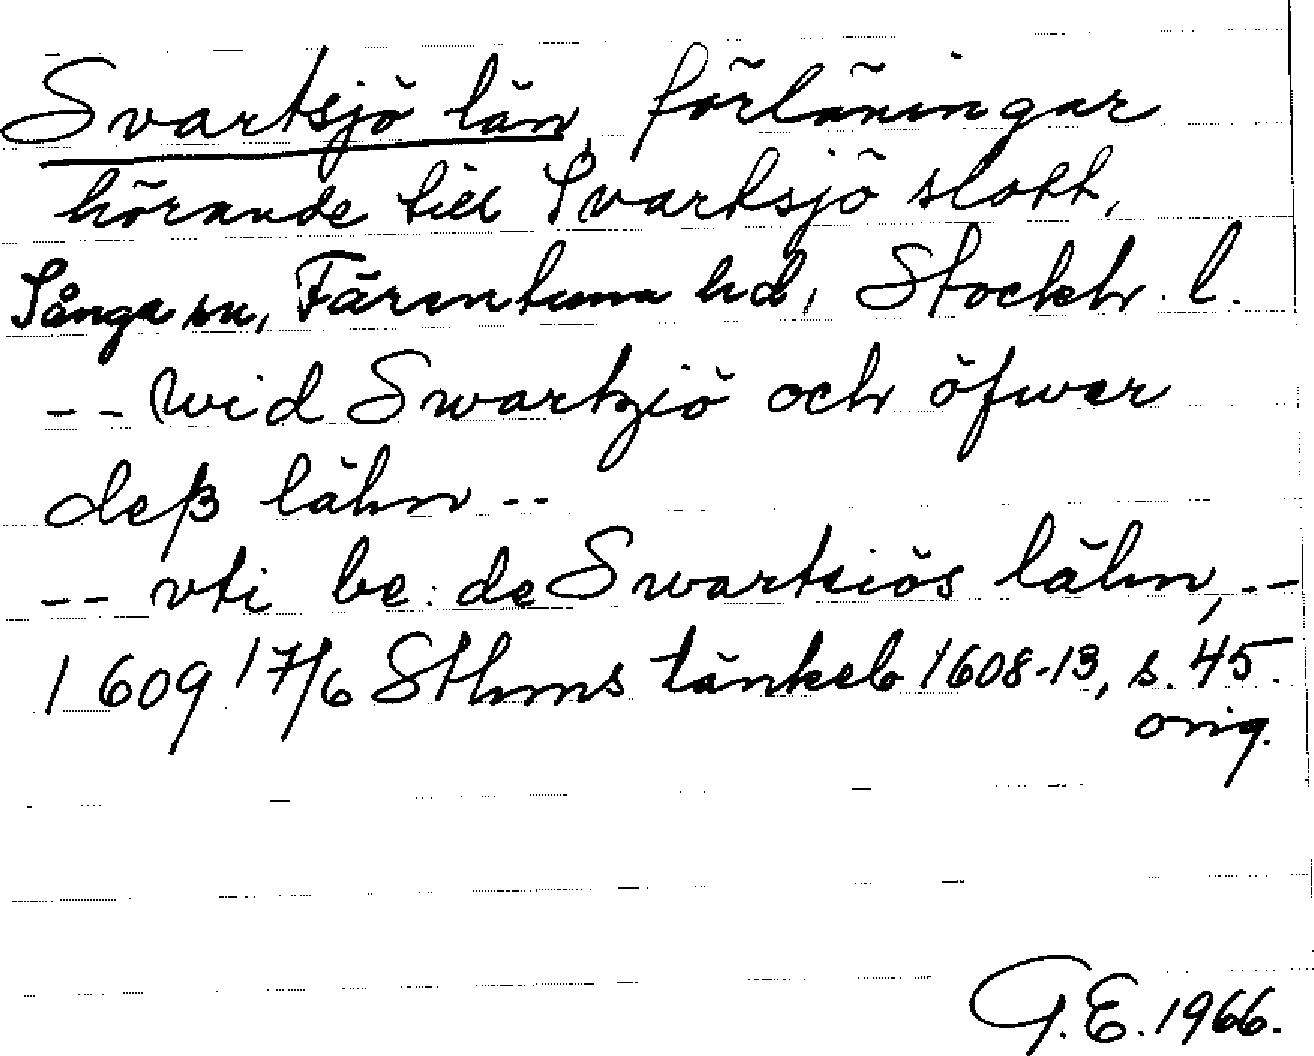 Svartsjö län, förläningar
hörande till Svartsjö slott,
Sånga sn, Färentuna hd, Stockh. l.
-- wid Swartzjö och öfwer
deß lähn --
-- vti be: de Swartsiös lähn, --
1609 17/6 Sthms tänkeb 1608-13, s. 45.
orig.
G. E. 1966.